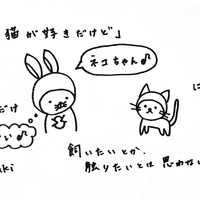 猫が好きだけど」
ネコちゃん♪
だけ
い♪
飼いたいとか、
触りたいとは思わない
ki
に